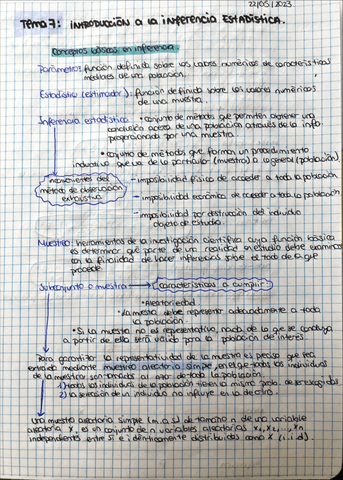 22/05/2023
TEMA 7: INTRODUCCIÓN A LA INFERENCIA ESTADÍSTICA.
Conceptos básicos en inferencia
Parámetros: función definida sobre los valores numéricos de características
medibles de una población.
Estadístico (estimador): función definida sobre los valores numéricos
de una muestra.
Inferencia estadística
• conjunto de métodos que permiten obtener una
conclusión acerca de una población a través de la info.
proporcionada por una muestra.
• conjunto de métodos que forman un procedimiento
inductivo que va de lo particular (muestra) a lo general (población)
inconvenientes del
método de observación
exhaustiva
- imposibilidad física de acceder a toda la población
- imposibilidad económica de acceder a toda la población
- imposibilidad por destrucción del individuo
objeto de estudio
Muestreo: herramientas de la investigación científica cuya función básica
es determinar qué parte de una realidad en estudio debe examinarse
con la finalidad de hacer inferencias sobre el todo de la que
procede.
Subconjunto o muestra
características a cumplir
• Aleatoriedad
• La muestra debe representar adecuadamente a toda
la población.
• Si la muestra no es representativa, nada de lo que se concluya
a partir de ella será válido para la población de interés.
Para garantizar la representatividad de la muestra es preciso que sea
extraída mediante muestreo aleatorio simple, en el que todos los individuos
de la muestra son tomados al azar de toda la población.
1) todos los individuos de la población tienen la misma prob. de ser escogidos
2) la selección de un individuo no influye en la de otro.
Una muestra aleatoria simple (m.a.s) de tamaño n de una variable
aleatoria X, es un conjunto de n variables aleatorias x1, x2, ..., xn
independientes entre sí e idénticamente distribuidas como X (i.i.d).